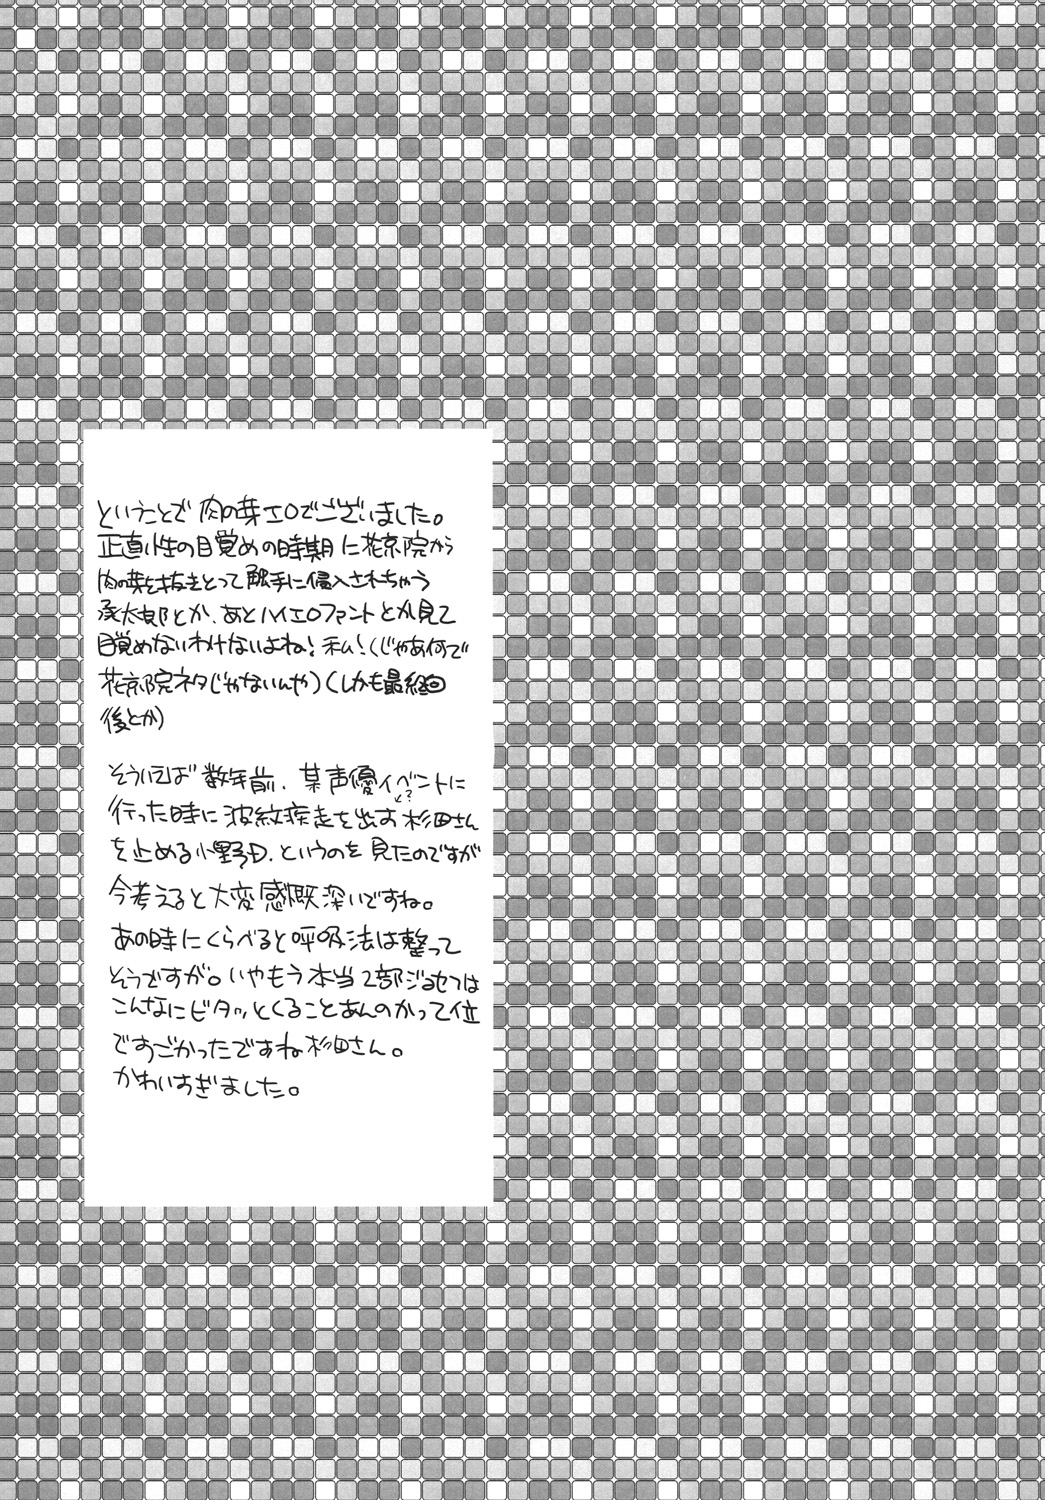 ということで 肉の芽エロでございました。
正直性の目覚めの時期に花京院から
肉の芽を抜きとって触手に侵入されちゃう
承太郎とか、あとハイエロファントとか見て
目覚めないわけないよね！私！（じゃあ何で
花京院ネタじゃないんや）（しかも最終回
後とか）
そういえば数年前、某声優イベントに
行った時に波紋疾走を出す杉田さん
↓?
を止める小野D.というのを見たのですが
今考えると大変感慨深いですね。
あの時にくらべると呼吸法は整って
そうですが。いやもう本当2部ジョセフは
こんなにピタッとくることあんのかって位
ですごかったですね杉田さん。
かわいすぎました。